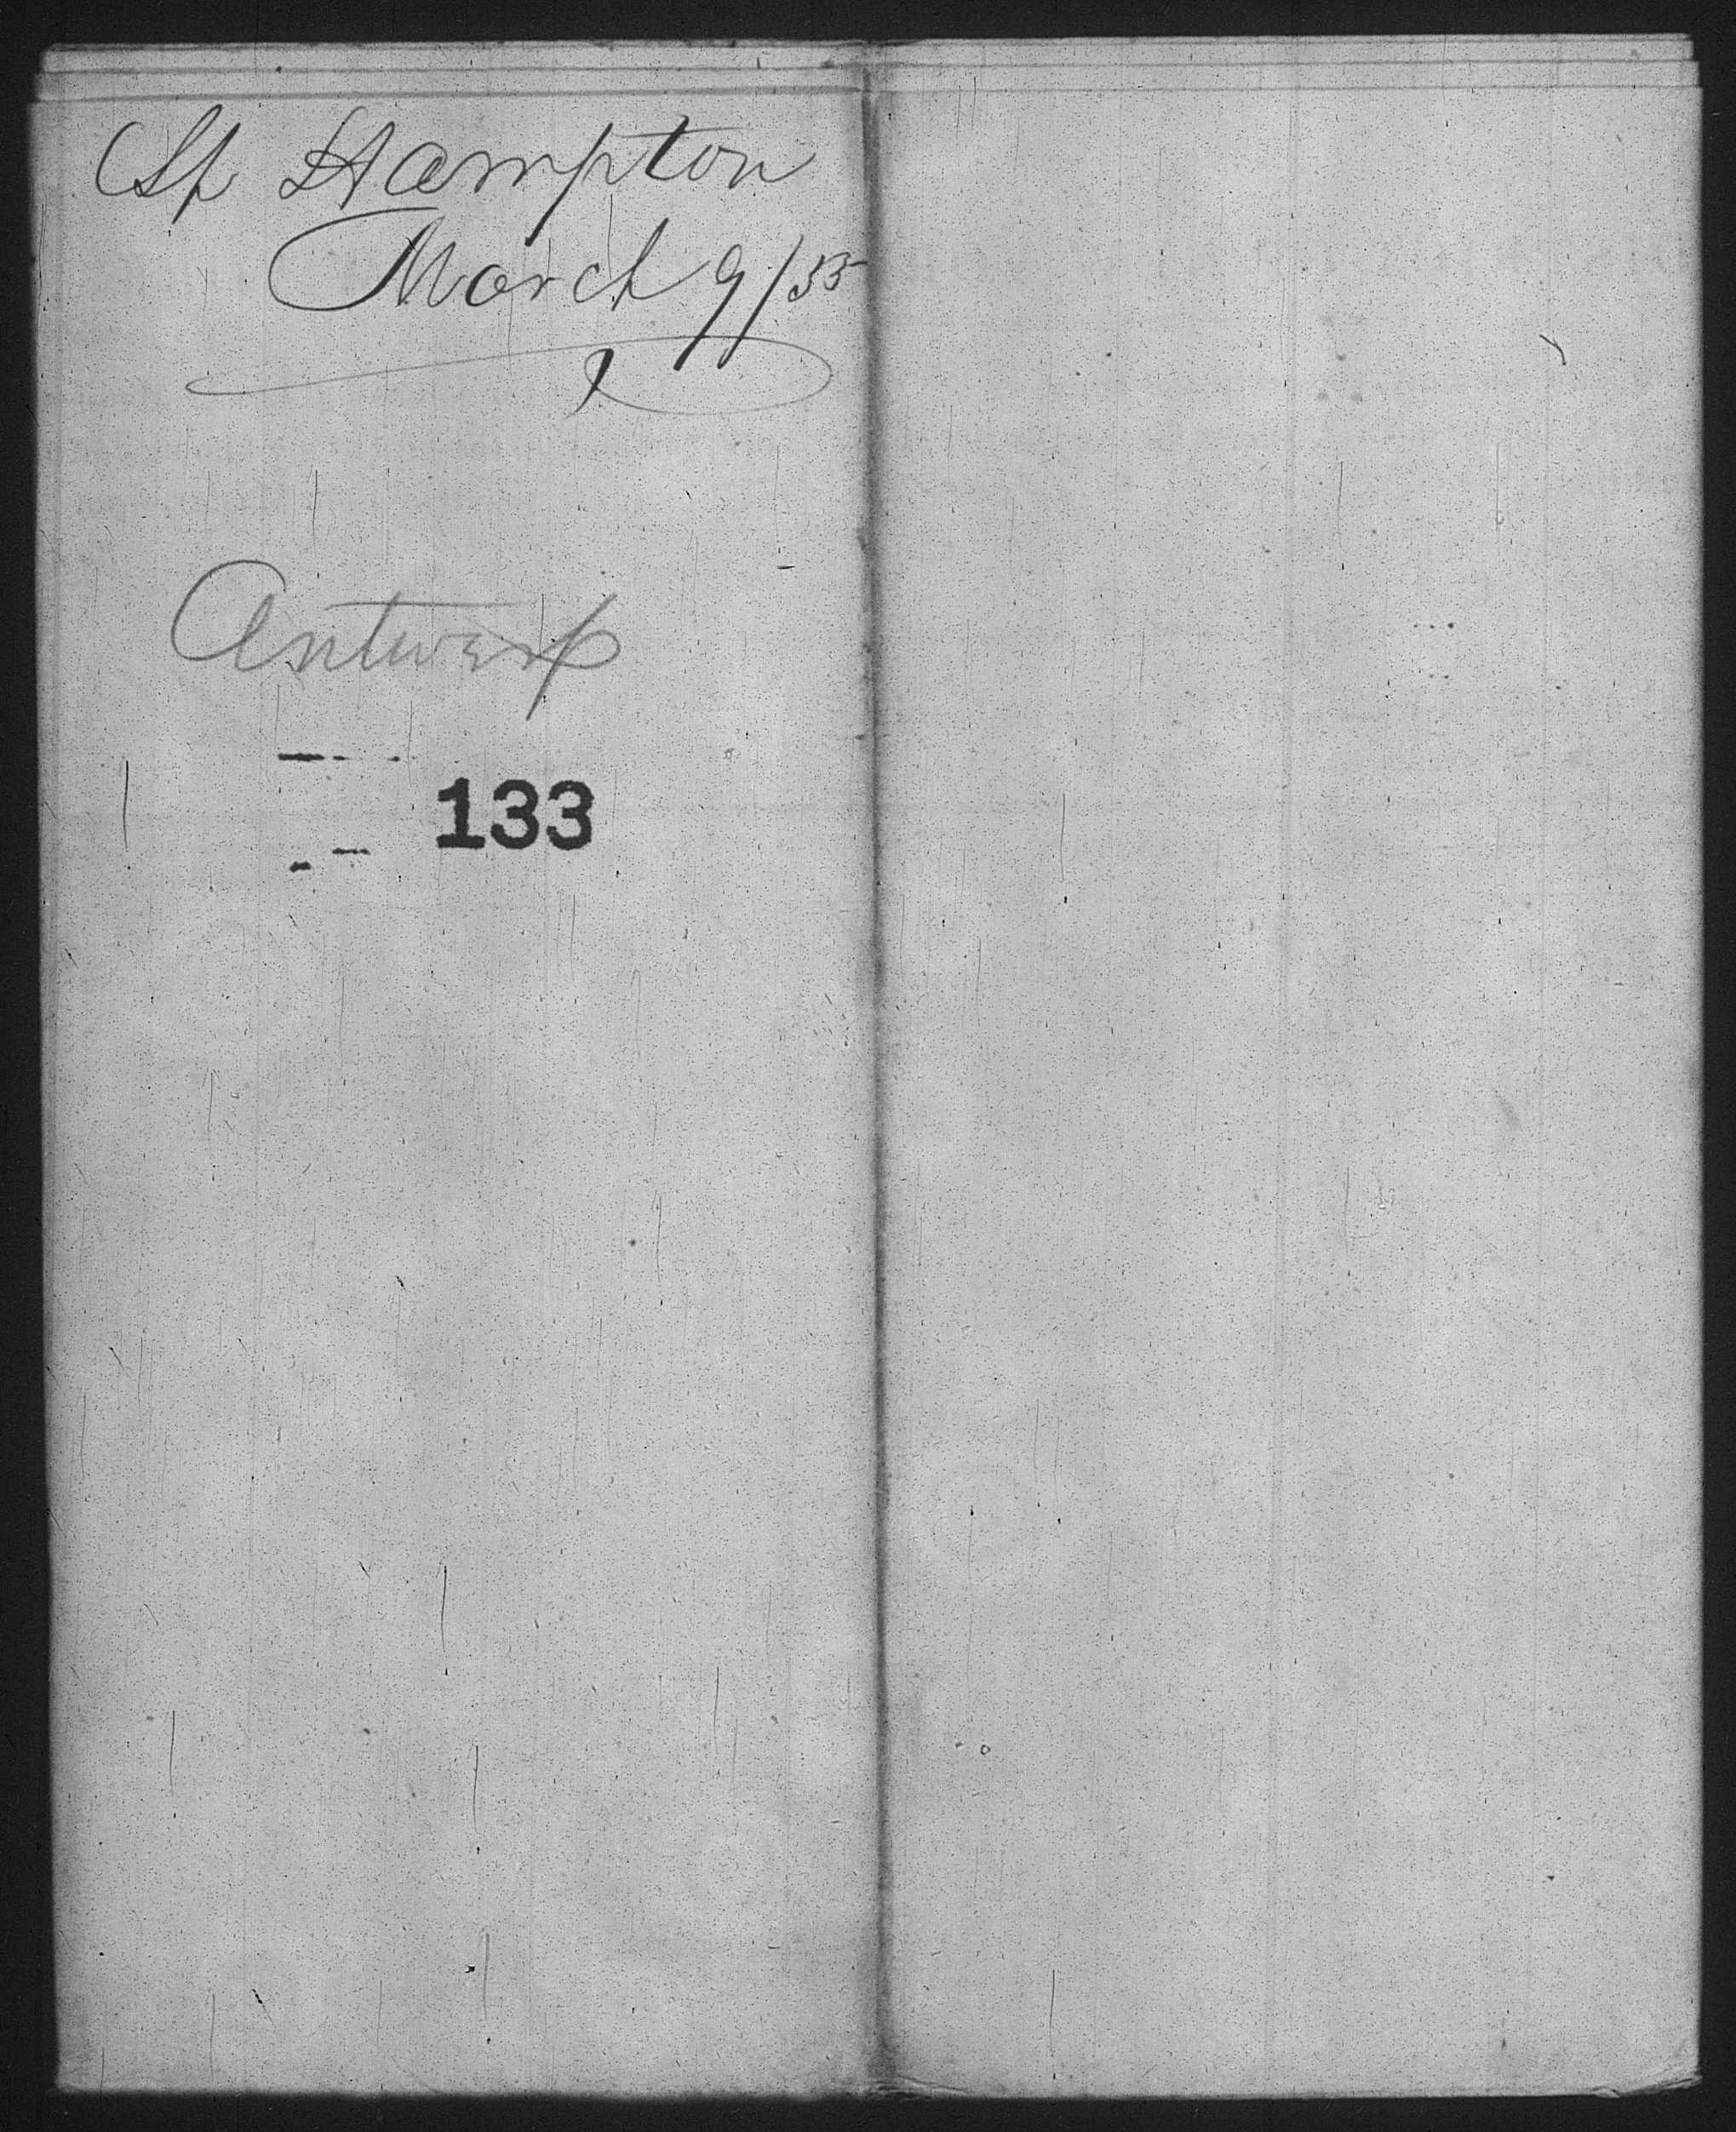 Sp Hampton
March 9/55
Antwerp
133